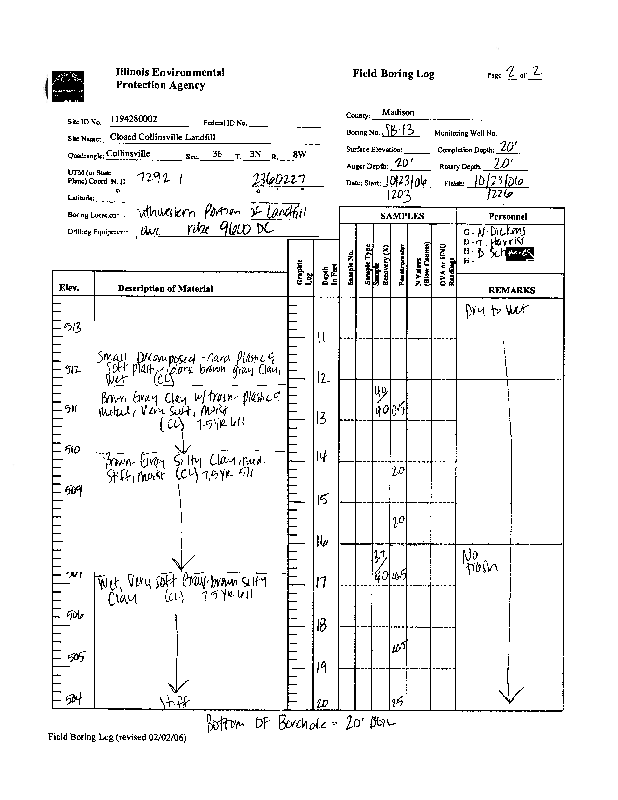 Illinois Environmental
Protection Agency
Field Boring Log
Page 2 of 2
Site ID No. 1194280002 Federal ID No.
Site Name: Closed Collinsville Landfill
Quadrangle: Collinsville Sec. 36 T. 3N R. 8W
UTM (or State
Plane) Coord. N. 7292 2360227
Latitude:
Boring Location: Portion of Landfill
Drilling Equipment: 9600 DC
County: Madison
Boring No. SB-13 Monitoring Well No.
Surface Elevation: Completion Depth: 20'
Auger Depth: 20' Rotary Depth: 20'
Date: Start: 10/23/06 Finish: 10/23/06
1203 1226
SAMPLES
Personnel
G - N. Dickens
D - T. Harris
H - B
H -
Elev.
Description of Material
Graphic
Log
Depth
In Feet
Sample No.
Sample Type
Sample
Recovery (X)
Penetrometer
N Values
(Blow Counts)
OVA or HNU
Readings
REMARKS
Dry to Wet
513
11
512
Small Decomposed - hard Plastic &
Soft Plastic, dark brown gray Clay,
Wet (CL)
12
511
Brown Gray Clay w/ trash - plastic &
metal, Very Soft, moist
(CL) 7.5YR 6/1
40
40
13
510
Brown Gray Silty Clay, med.
Stiff, moist (CL) 7.5YR 5/1
14
20
509
15
20
16
37
40
No
trash
17
Wet, Very soft Gray-brown silty
Clay (CL) 7.5YR 6/1
506
18
505
19
504
Stiff
20
25
Bottom OF Borehole = 20' BGL
Field Boring Log (revised 02/02/06)